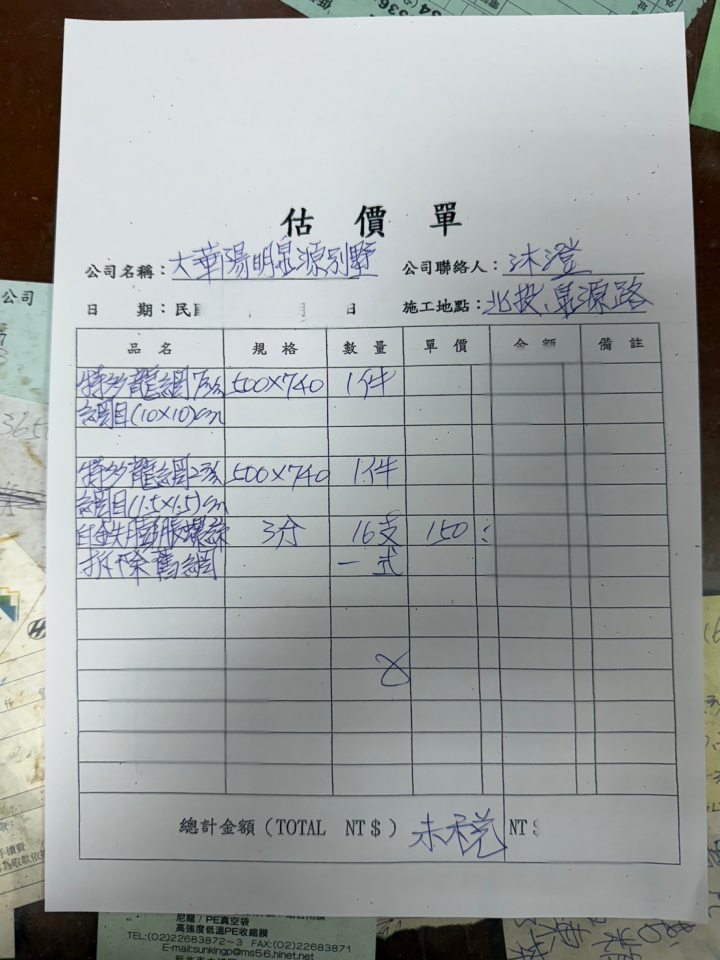 估價單
公司名稱：大華陽明泉源別墅 公司聯絡人：沐澄
日 期：民 月 日 施工地點：北投、泉源路
品名 規格 數量 單價 金額 備註
特多龍網 500×740 1件
網目(10×10)cm
特多龍網 500×740 1件
網目(1.5×1.5)cm
白鐵膨脹螺絲 3分 16支 150
拆除舊網 一式
總計金額（TOTAL NT$） 未稅 NT$
公司
尼龍/PE真空袋
高強度低溫PE收縮膜
TEL:(02)22683872～3 FAX:(02)22683871
E-mail:sunkingp@ms56.hinet.net